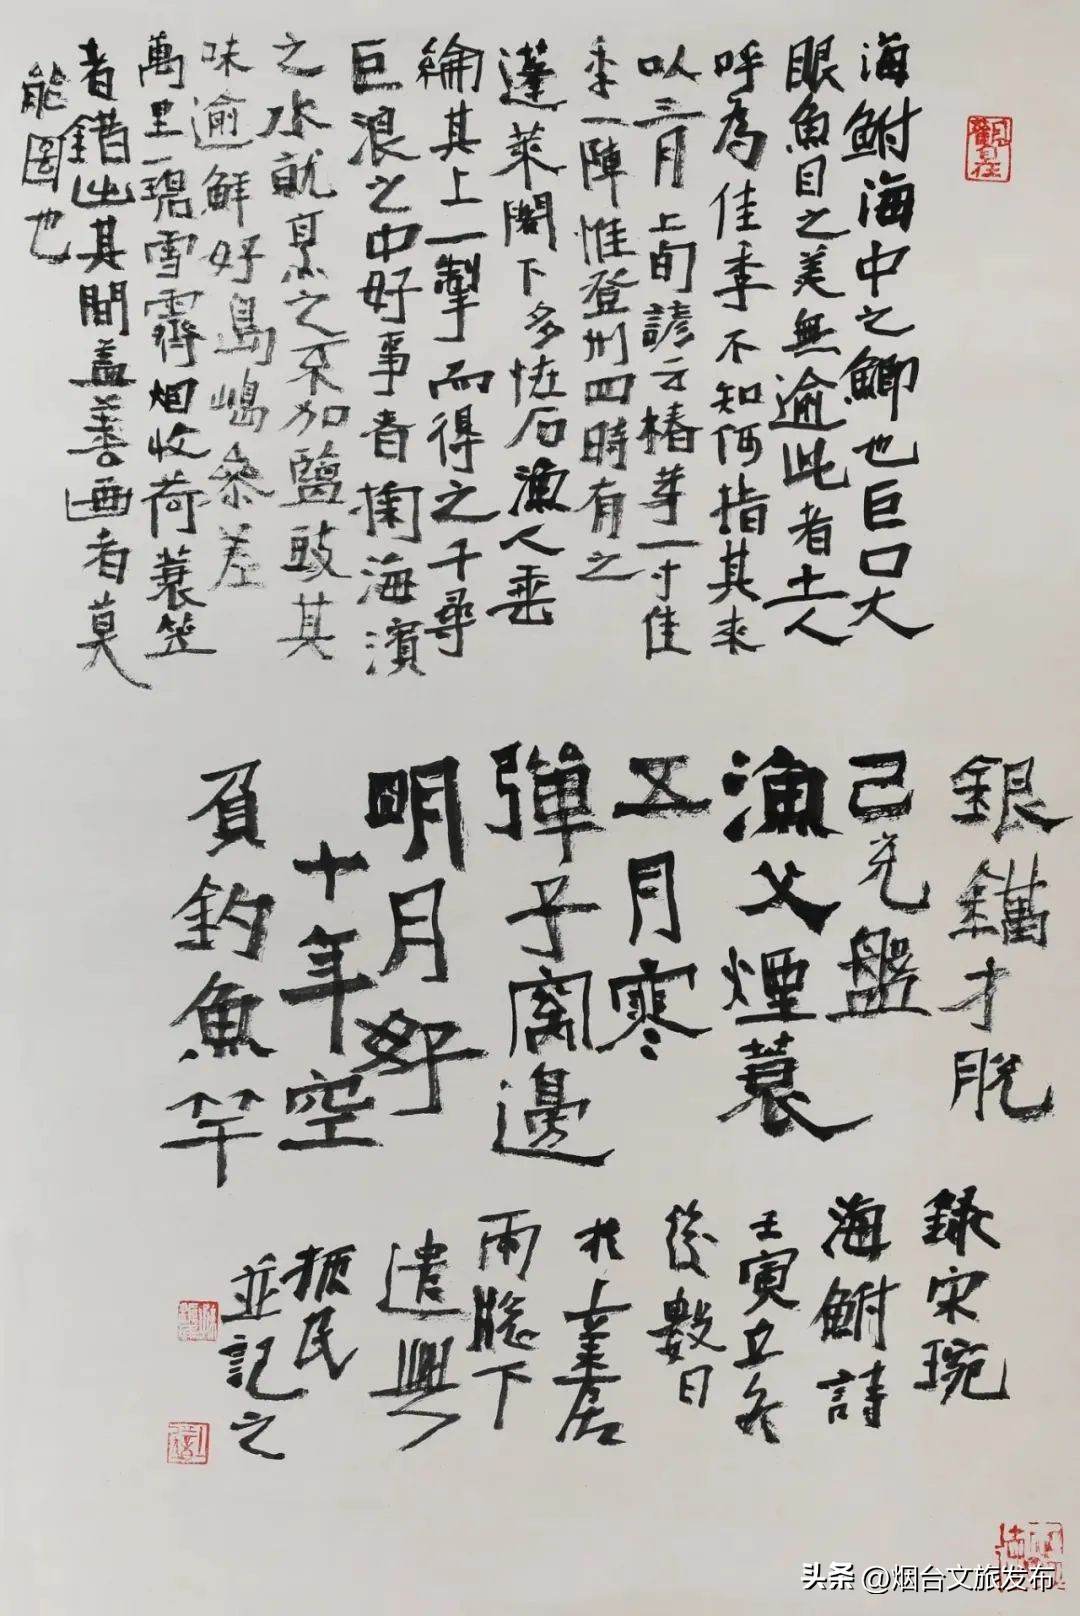 海鮒海中之鯽也巨口大
眼魚目之美無逾此者土人
呼為佳季不知何指其来
以三月上旬諺云椿芽一寸佳
季一陣惟登州四時有之
蓬萊閣下多怪石漁人垂
綸其上一掣而得之千尋
巨浪之中好事者掬海濱
之水就烹之不加鹽豉其
味逾鮮好島嶋叅差
萬里一碧雪霽烟收荷蓑笠
者錯出其間蓋善画者莫
能圖也
觀自在
銀鐺才脫
已充盤
漁父煙蓑
五月寒
彈子窩邊
明月好
十年空
負釣魚竿
録宋琬
海鮒詩
壬寅立冬
後數日
於居
雨牕下
遣興
振民
並記之
头条 @烟台文旅发布